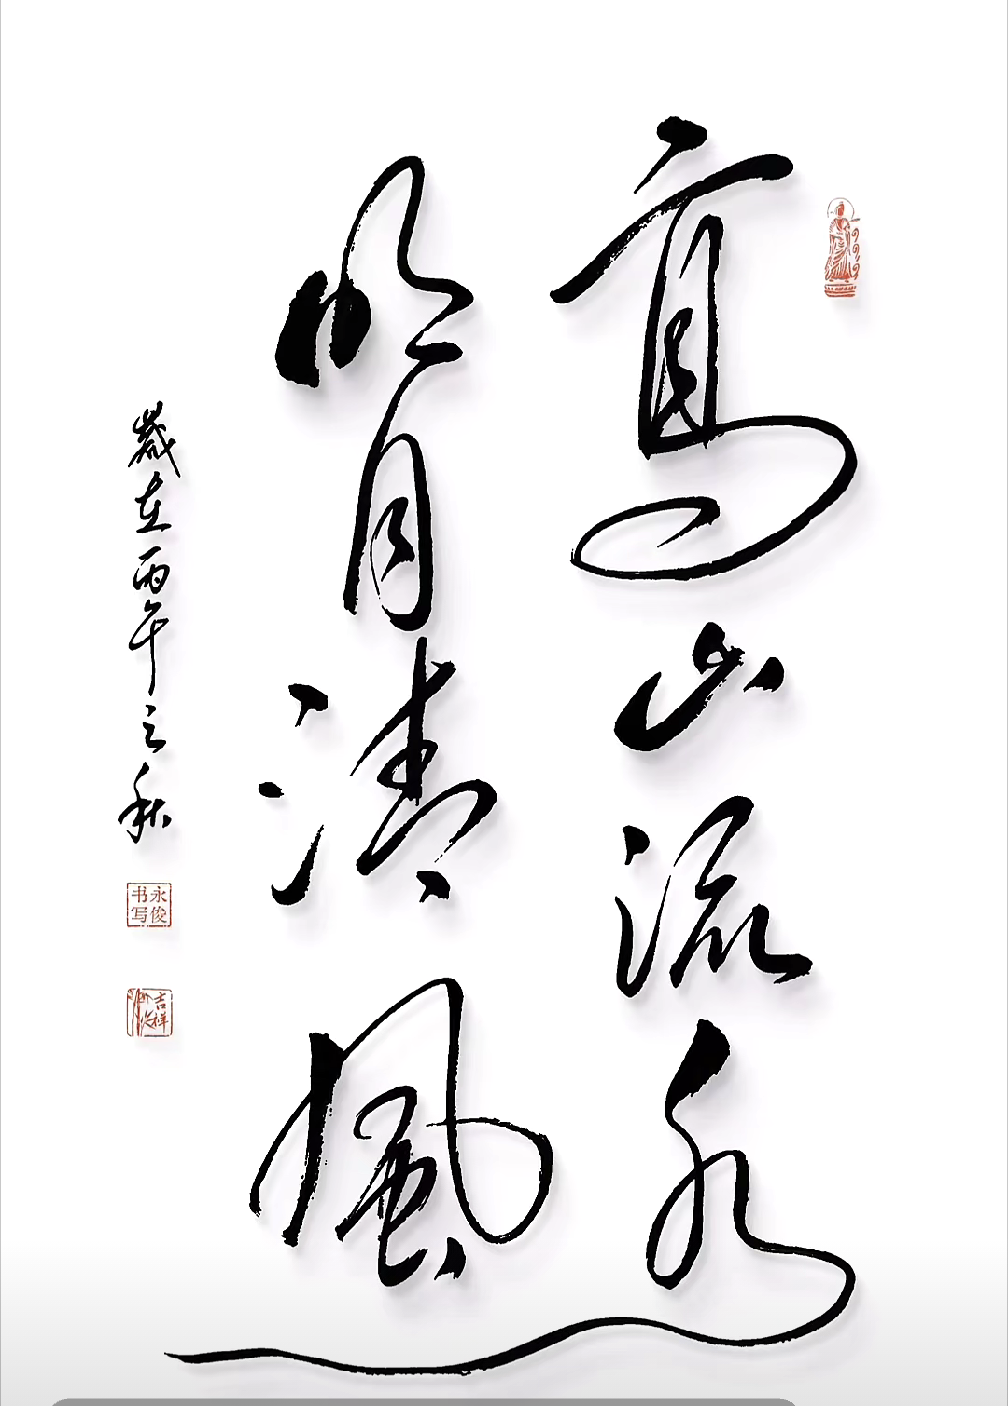 高山流水
明月清風
歲在丙午之秋
永俊书写
吉祥